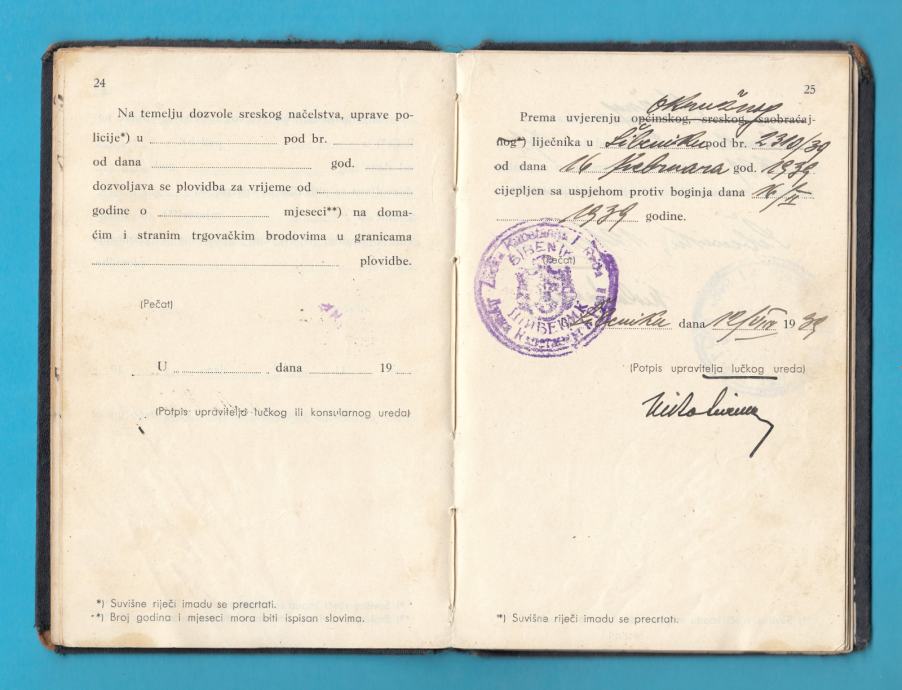 24
Na temelju dozvole sreskog načelstva, uprave po-
licije*) u pod br.
od dana god.
dozvoljava se plovidba za vrijeme od
godine o mjeseci**) na doma-
ćim i stranim trgovačkim brodovima u granicama
plovidbe.
(Pečat)
U dana 19
(Potpis upravitelja lučkog ili konsularnog ureda)
*) Suvišne riječi imadu se precrtati.
**) Broj godina i mjeseci mora biti ispisan slovima.
25
okružnog
Prema uvjerenju općinskog, sreskog, saobraćaj-
nog*) liječnika u Šibeniku pod br. 2310/39
od dana 16 februara god. 1939
cijepljen sa uspjehom protiv boginja dana 16/II
1939 godine.
(Pečat)
ŠIBENIK
ШИБЕНИК
Šibeniku dana 19 39
(Potpis upravitelja lučkog ureda)
*) Suvišne riječi imadu se precrtati.